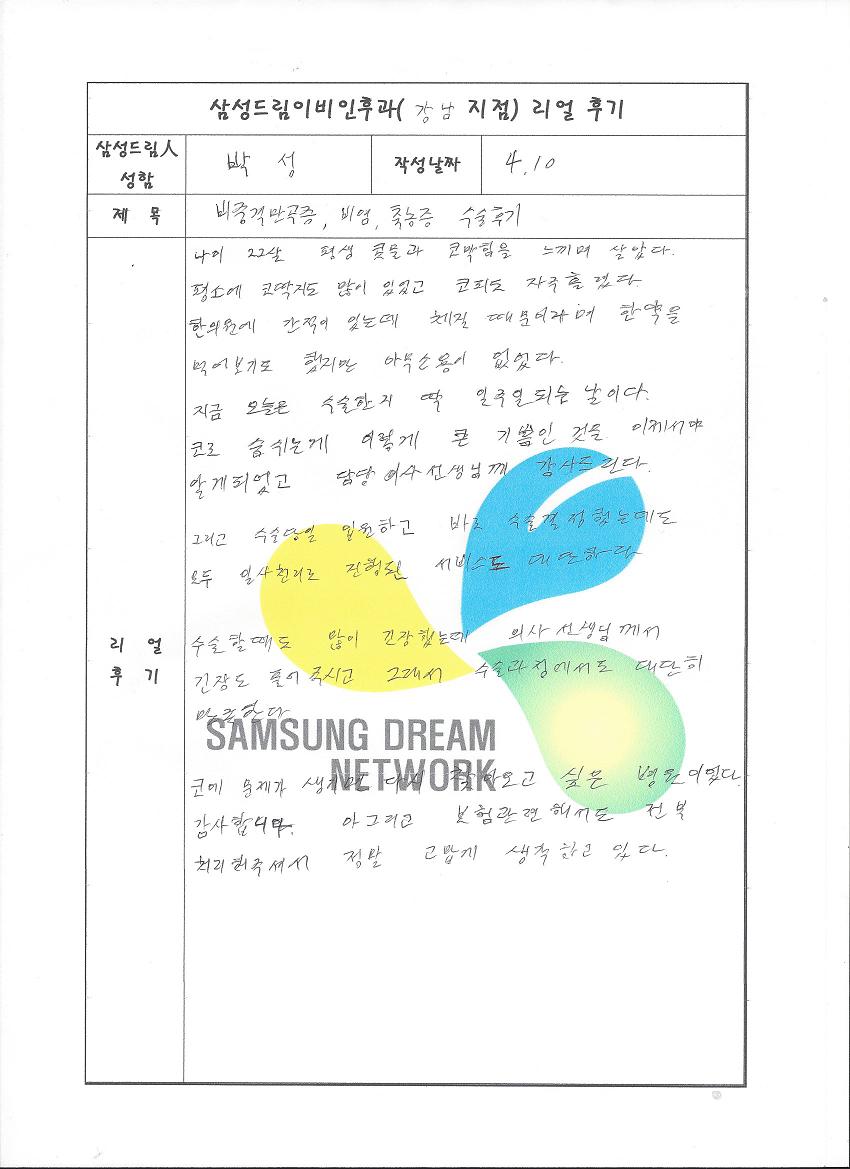 삼성드림이비인후과( 강남 지점) 리얼 후기
삼성드림人 성함
박 성
작성날짜
4.10
제 목
비중격만곡증, 비염, 축농증 수술후기
리 얼 후 기
나이 22살 평생 콧물과 코막힘을 느끼며 살았다.
평소에 코딱지도 많이 있었고 코피도 자주 흘렸다
한의원에 간적이 있는데 체질 때문이라며 한약을
먹어보기도 했지만 아무소용이 없었다.
지금 오늘은 수술한지 딱 일주일되는 날이다.
코로 숨쉬는게 이렇게 큰 기쁨인 것을 이제서야
알게되었고 담당 의사선생님께 감사드린다.
그리고 수술당일 입원하고 바로 수술결정했는데도
모두 일사천리로 진행된 서비스도 대단하다
수술할때도 많이 긴장했는데 의사선생님께서
긴장도 풀어주시고 그래서 수술과정에서도 대단히
만족한다
SAMSUNG DREAM
NETWORK
코에 문제가 생기면 다시 찾아오고 싶은 병원이었다.
감사합니다. 아 그리고 보험관련해서도 전부
처리해주셔서 정말 고맙게 생각하고 있다.